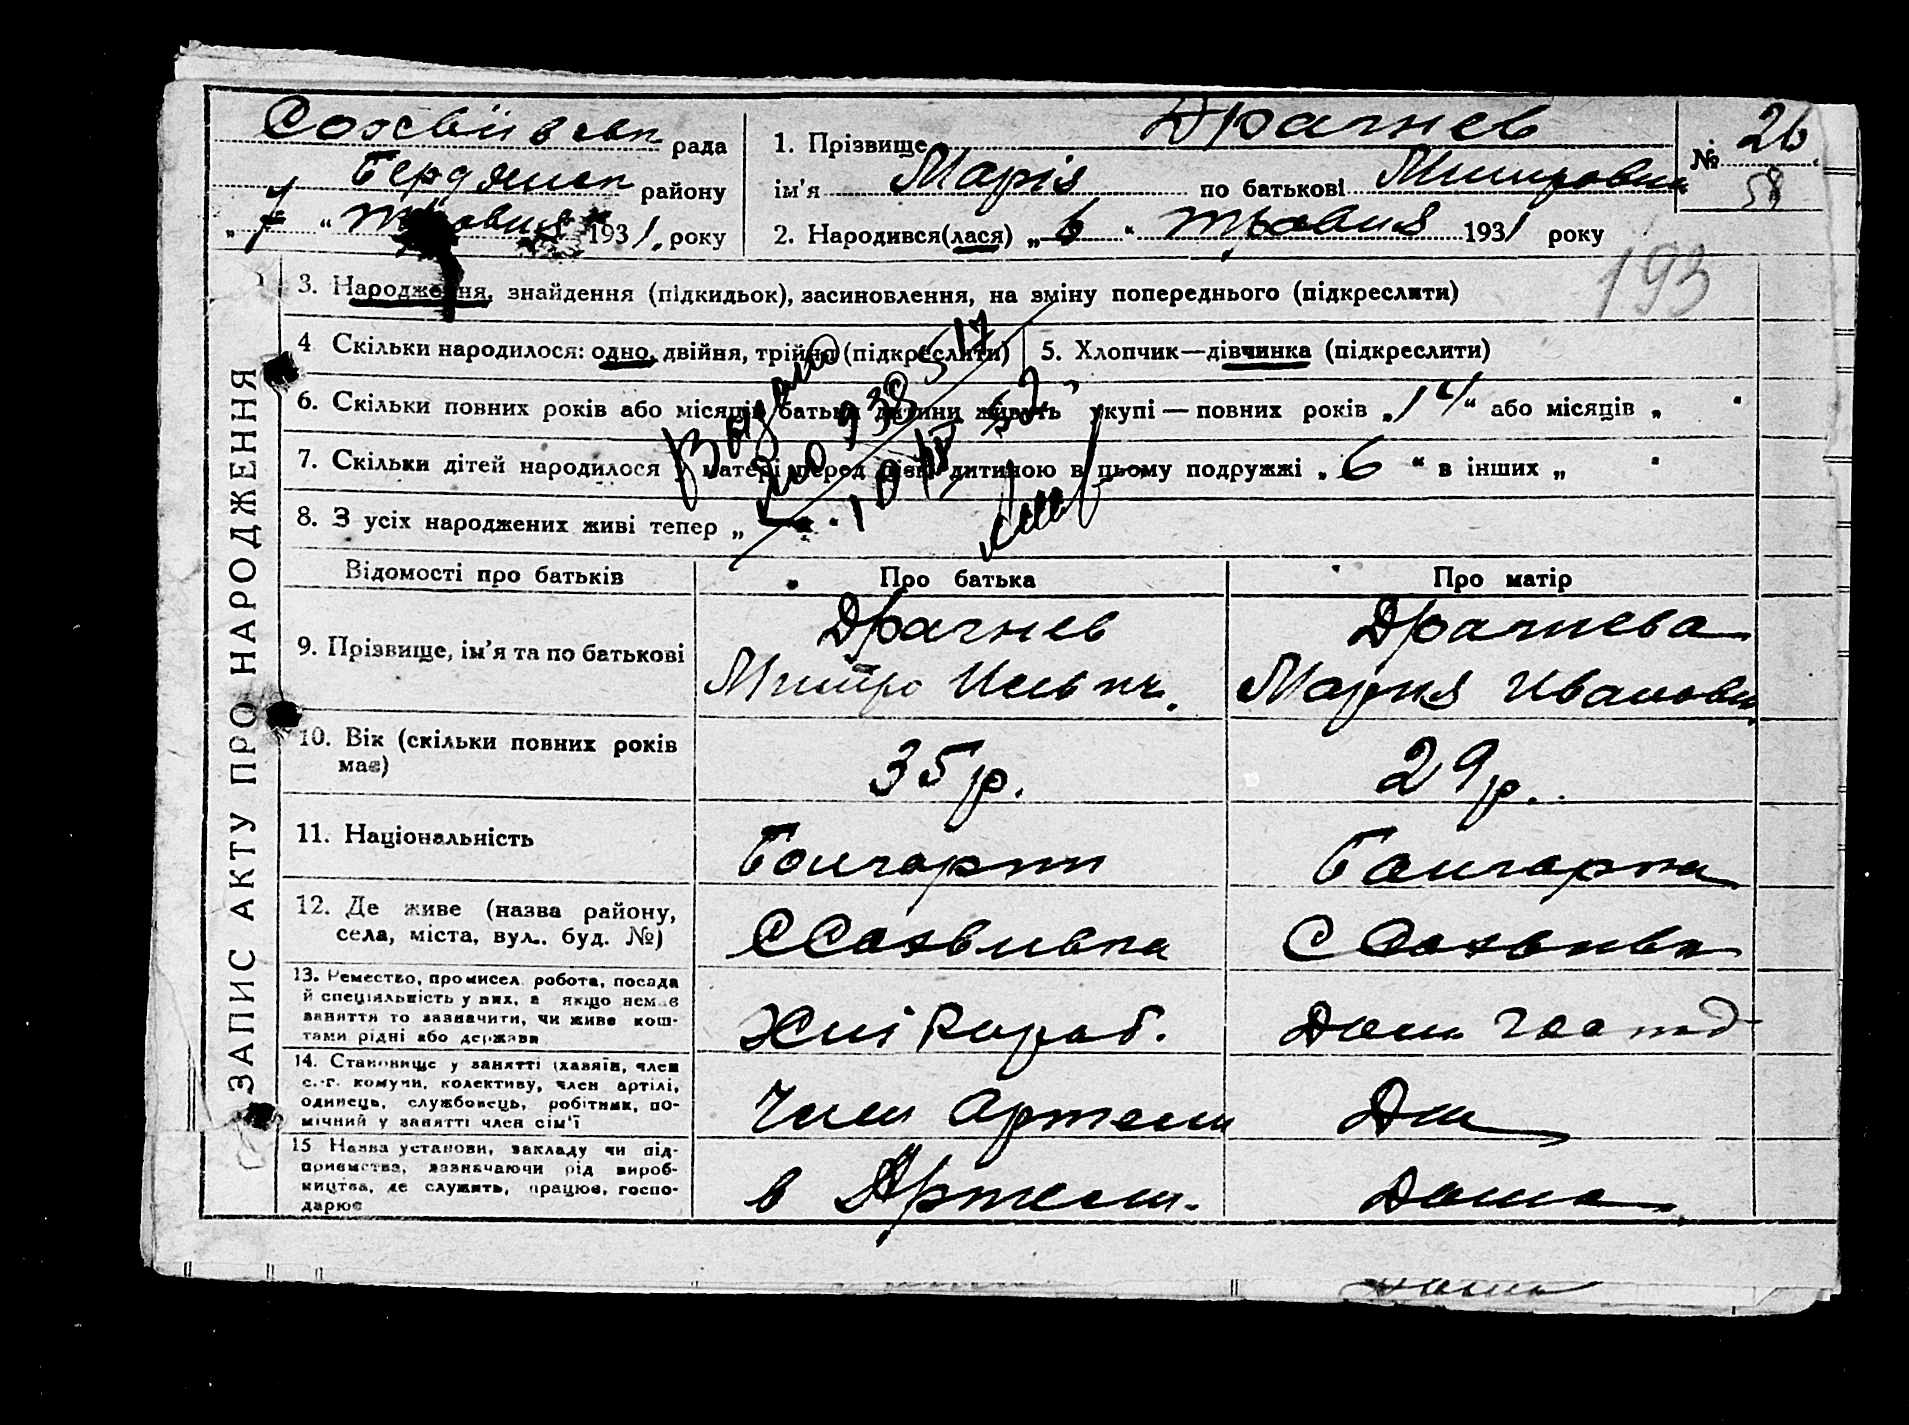 рада
Бердянськ району
„ 7 “ травня 1931. року
1. Прізвище Драгнев
ім'я Марія по батькові
2. Народився(лася) „ 6 “ травня 1931 року
№ 26
58
193
ЗАПИС АКТУ ПРО НАРОДЖЕННЯ
3. Народження, знайдення (підкидьок), засиновлення, на зміну попереднього (підкреслити)
4 Скільки народилося: одно, двійня, трійня (підкреслити)
5. Хлопчик—дівчинка (підкреслити)
6. Скільки повних років або місяців батьки дитини живуть укупі — повних років „ 14 “ або місяців „
7. Скільки дітей народилося у матері перед цією дитиною в цьому подружжі „ 6 “ в інших „
8. З усіх народжених живі тепер „
Відомості про батьків
Про батька
Про матір
9. Прізвище, ім'я та по батькові
Драгнев
Драгнева
Митро
Мария Иванов
10. Вік (скільки повних років
має)
35 р.
29 р.
11. Національність
Болгарин
Болгарка
12. Де живе (назва району,
села, міста, вул.. буд. №)
13. Ремество, промисел робота, посада
й спеціяльність у них, а якщо немає
заняття то зазначити, чи живе кош-
тами рідні або держави
Хліборороб.
Дом господ
14. Становище у занятті (хазяїн, член
с.-г. комуни, колективу, член артілі,
одинець, службовець, робітник, по-
мічний у занятті член сім'ї
Член Артели
15 Назва установи, закладу чи під-
приємства, зазначаючи рід вироб-
ництва, де служить, працює, госпо-
дарює
в Артели.
Дома